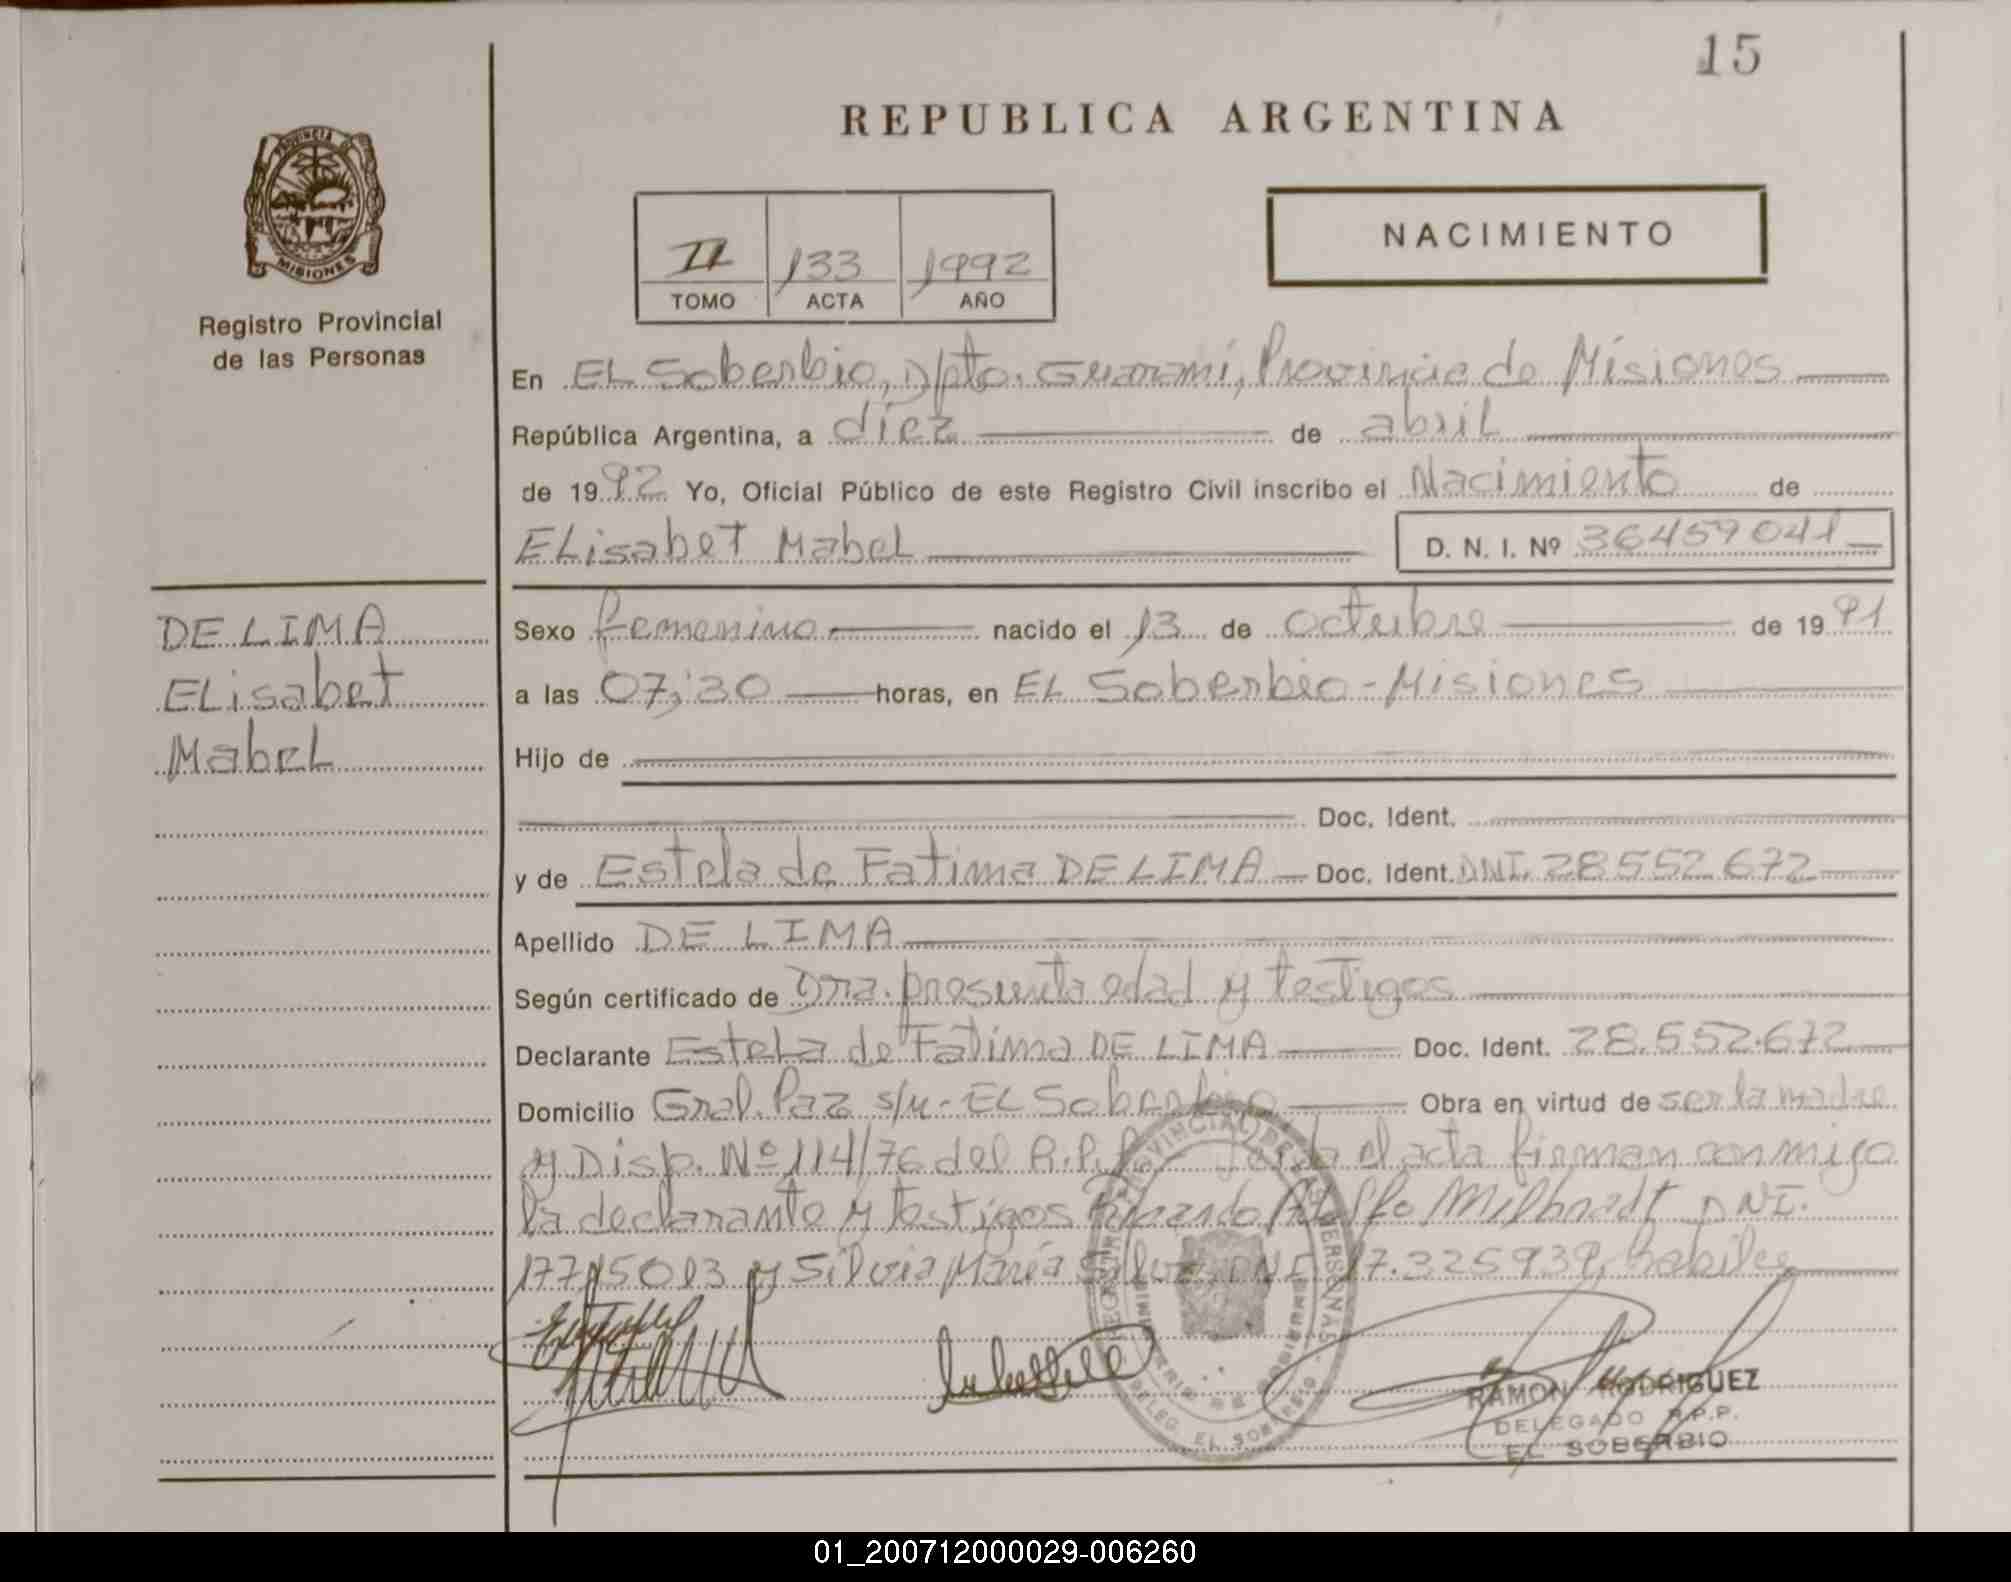 15
REPUBLICA ARGENTINA
PROVINCIA DE
MISIONES
Registro Provincial
de las Personas
II 133 1992
TOMO ACTA AÑO
NACIMIENTO
En EL Soberbio, Dpto. Guaraní, Provincia de Misiones
República Argentina, a diez de abril
de 1992 Yo, Oficial Público de este Registro Civil inscribo el Nacimiento de
ELisabet Mabel D. N. I. Nº 36459041
DE LIMA
ELisabet
MabeL
Sexo femenino nacido el 13 de octubre de 1991
a las 07,30 horas, en EL Soberbio - Misiones
Hijo de
Doc. Ident.
y de Estela de Fatima DE LIMA Doc. Ident. DNI. 28552.672
Apellido DE LIMA
Según certificado de Dra. presunta edad y testigos
Declarante Estela de Fatima DE LIMA Doc. Ident. 28.552.672
Domicilio Gral. Paz s/n - EL Soberbio Obra en virtud de ser la madre
y Disp. Nº 114/76 del R.P.P. el acta firman conmigo
la declarante y testigos Ricardo Adolfo Milbradt DNI.
17715013 y Silvia María DNI 17.325939, habiles
RAMON RODRIGUEZ
DELEGADO R.P.P.
EL SOBERBIO
REGISTRO PROVINCIAL DE LAS PERSONAS
DELEG. EL SOBERBIO
01_200712000029-006260